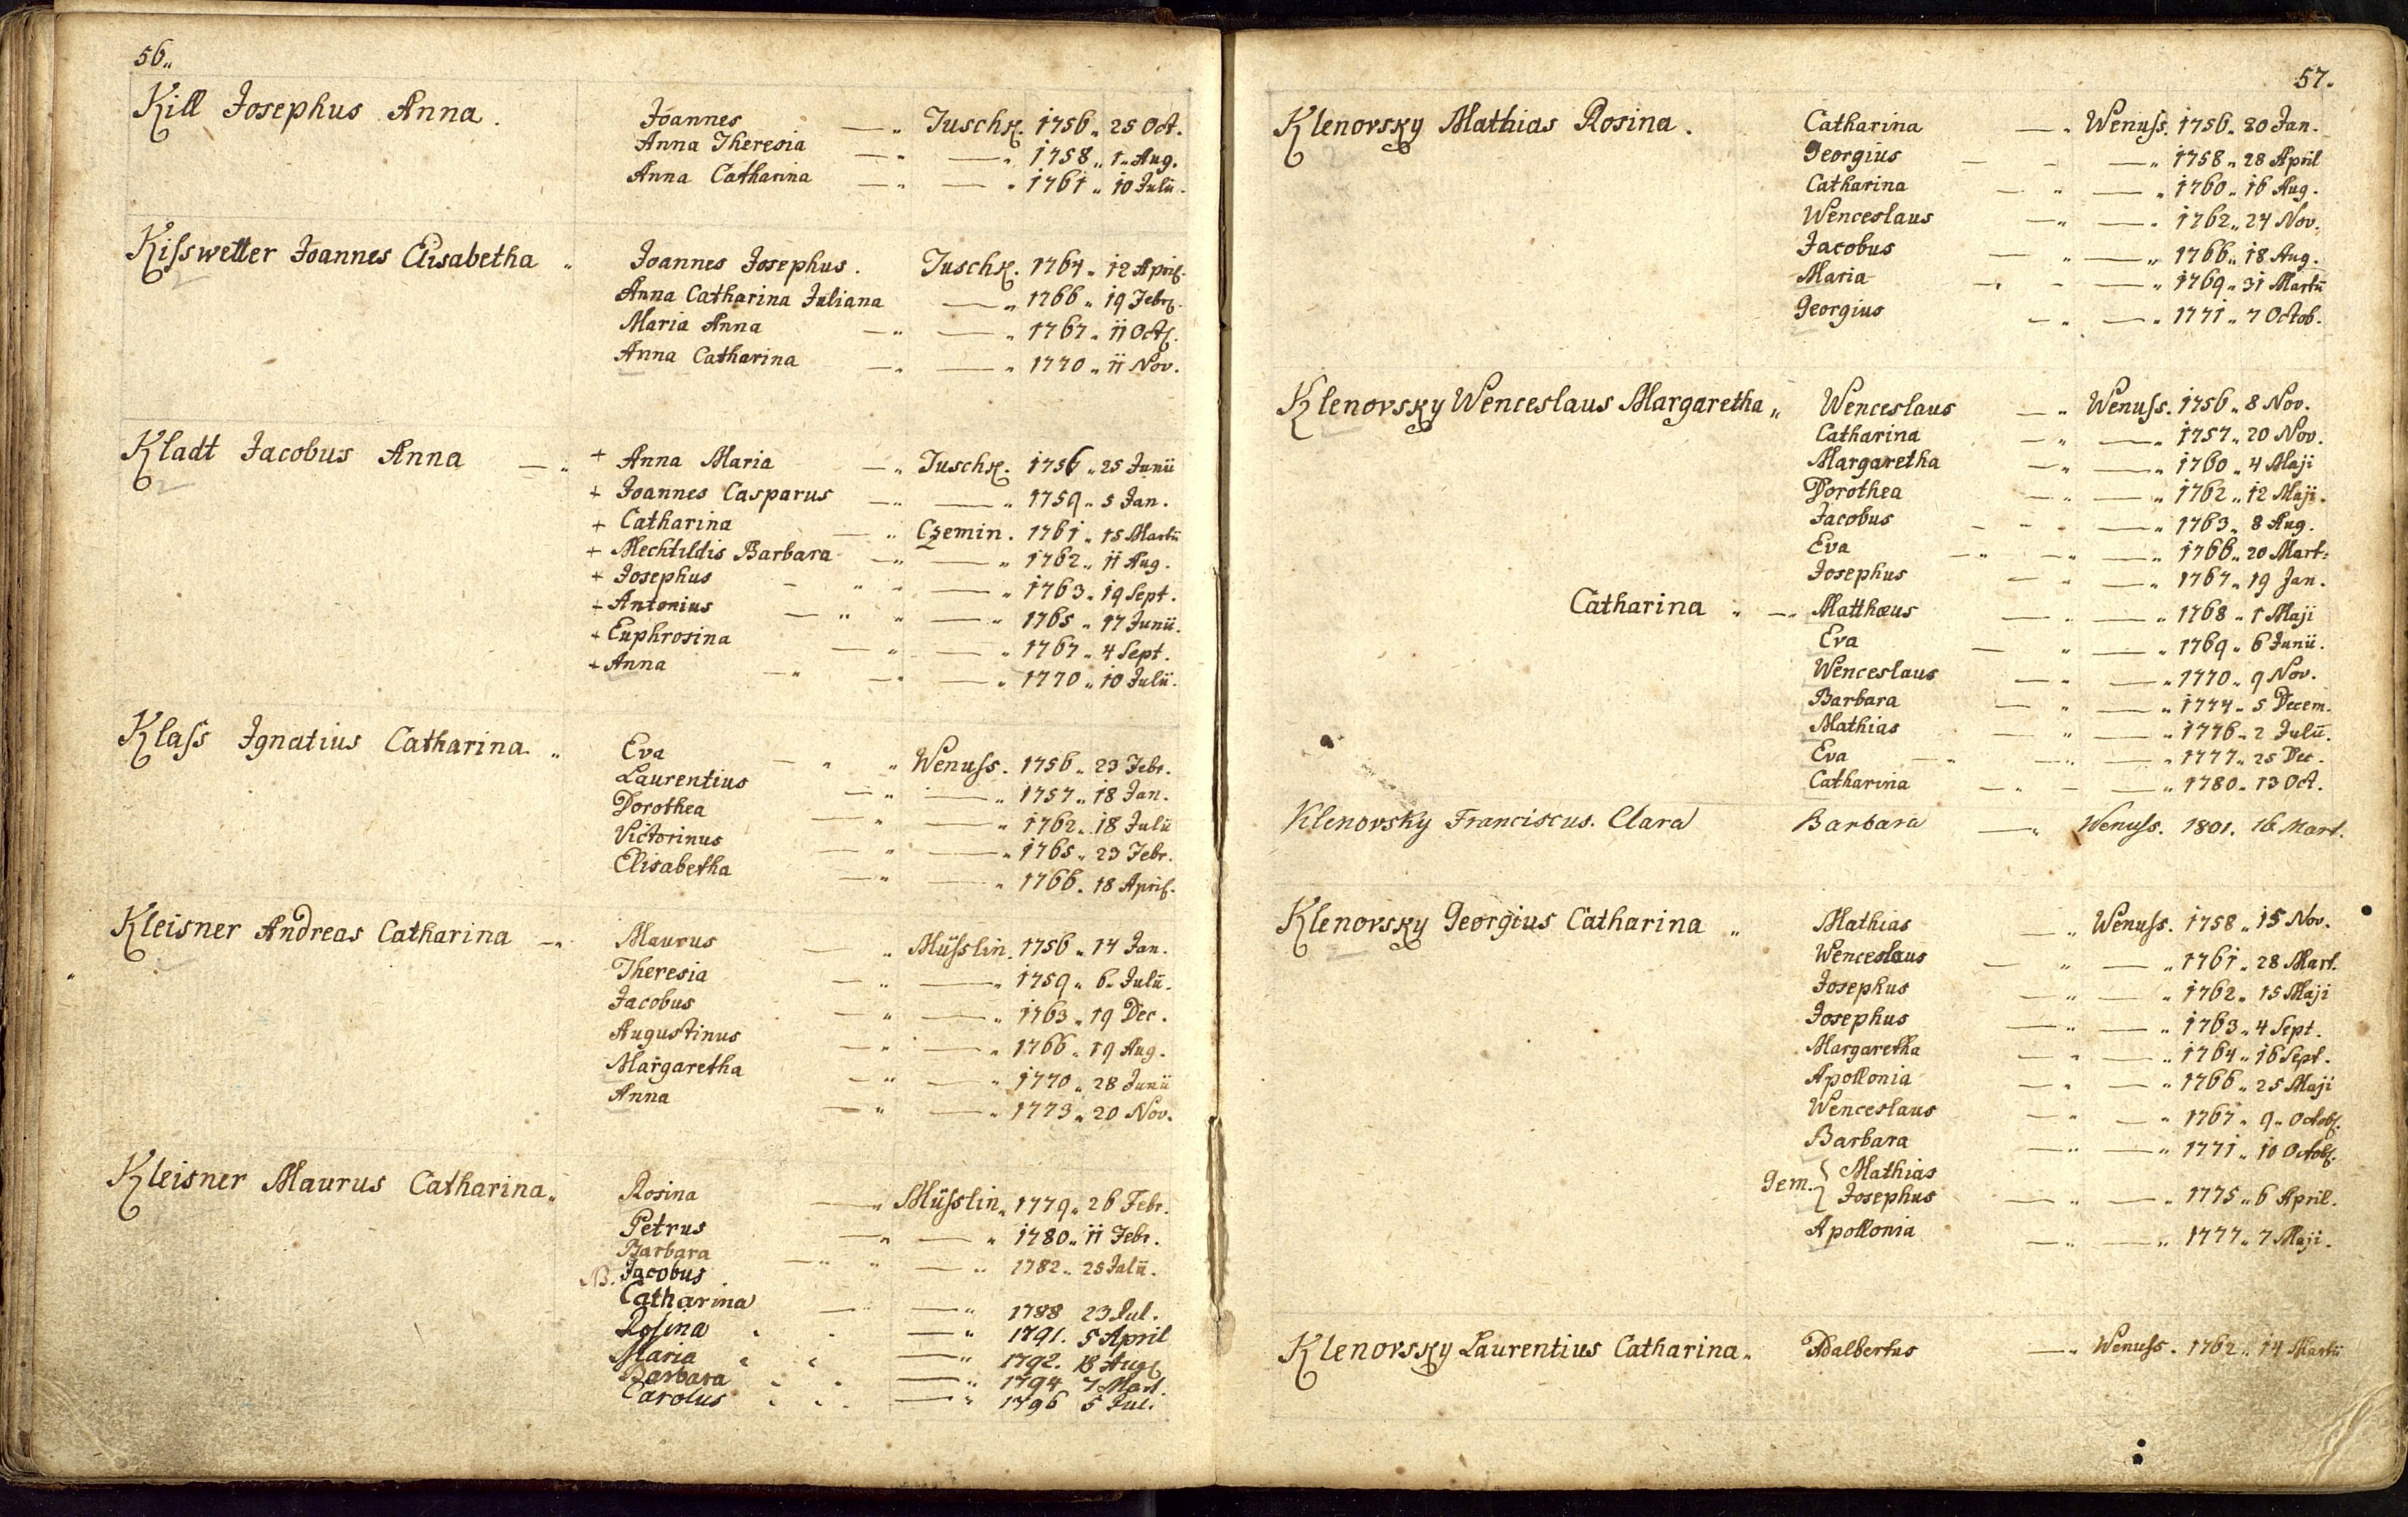 56„
Kill Josephus Anna. Joannes — „ Tuschk. 1756„ 25 Oct.
Anna Theresia — „ — „ 1758„ 1„ Aug.
Anna Catharina — „ — „ 1761„ 10 Julii.
Kisswetter Joannes Elisabetha „ Joannes Josephus. Tuschk. 1764„ 12 April.
Anna Catharina Juliana — „ 1766„ 19 Febr.
Maria Anna — „ — „ 1767„ 11 Oct.
Anna Catharina — „ — „ 1770„ 11 Nov.
Kladt Jacobus Anna — „ + Anna Maria — „ Tuschk. 1756„ 25 Junii
+ Joannes Casparus — „ — „ 1759„ 5 Jan.
+ Catharina — „ Czemin. 1761„ 15 Martii
+ Mechtildis Barbara — „ — „ 1762„ 11 Aug.
+ Josephus — „ — „ 1763„ 19 Sept.
+ Antonius — „ „ — „ 1765„ 17 Junii.
+ Euphrosina — „ — „ 1767„ 4 Sept.
+ Anna — „ — „ — „ 1770„ 10 Julii.
Klass Ignatius Catharina „ Eva — „ „ Wenuss. 1756„ 23 Febr.
Laurentius — „ — „ 1757„ 18 Jan.
Dorothea — „ — „ 1762„ 18 Julii
Victorinus — „ — „ 1765„ 23 Febr.
Elisabetha — „ — „ 1766. 18 April.
Kleisner Andreas Catharina — „ Maurus — „ Müsslin. 1756„ 14 Jan.
Theresia — „ — „ 1759„ 6„ Julii.
Jacobus — „ — „ 1763„ 19 Dec.
Augustinus — „ — „ 1766„ 19 Aug.
Margaretha — „ — „ 1770„ 28 Junii
Anna — „ — „ 1773„ 20 Nov.
Kleisner Maurus Catharina„ Rosina — „ Müsslin„ 1779„ 26 Febr.
Petrus — „ — „ 1780„ 11 Febr.
Barbara — „ „ — „ 1782„ 25 Julii.
NB. Jacobus.
Catharina — „ — „ 1788 23 Jul.
Rosina . . — „ 1791. 5 April
Maria „ „ — „ 1792. 18 Aug.
Barbara . . — „ 1794 7 Mart.
Carolus . . . — „ 1796 5 Jul.
57.
Klenovsky Mathias Rosina. Catharina — „ Wenuss. 1756„ 20 Jan.
Georgius — - — „ 1758„ 28 April
Catharina — „ — „ 1760„ 16 Aug.
Wenceslaus — „ — „ 1762„ 24 Nov.
Jacobus — „ — „ 1766„ 18 Aug.
Maria — „ - — „ 1769„ 31 Martii
Georgius — „ — „ 1771„ 7 Octob.
Klenovsky Wenceslaus Margaretha„ Wenceslaus — „ Wenuss. 1756„ 8 Nov.
Catharina — „ — „ 1757„ 20 Nov.
Margaretha — „ — „ 1760„ 4 Maji
Dorothea — „ — „ 1762„ 12 Maji.
Jacobus - - - — „ 1763„ 8 Aug.
Eva — „ — „ — „ 1766„ 20 Mart:
Josephus — „ — „ 1767„ 19 Jan.
Catharina „ — „ Matthæus — „ — „ 1768„ 1 Maji
Eva — „ — „ 1769„ 6 Junii.
Wenceslaus — „ — „ 1770„ 9 Nov.
Barbara — „ — „ 1774„ 5 Decem.
Mathias — „ — „ 1776„ 2 Julii.
Eva — „ — „ — „ 1777„ 25 Dec.
Catharina — „ - — „ 1780„ 13 Oct.
Klenovsky Franciscus. Clara Barbara — „ Wenuss. 1801. 16 Mart.
Klenovsky Georgius Catharina „ Mathias — „ Wenuss. 1758„ 15 Nov.
Wenceslaus — „ — „ 1761„ 28 Mart.
Josephus — „ — „ 1762„ 15 Maji
Josephus — „ — „ 1763„ 4 Sept.
Margaretha — „ — „ 1764„ 16 Sept.
Apollonia — „ — „ 1766„ 25 Maji
Wenceslaus — „ — „ 1767„ 9„ Octob.
Barbara — „ — „ 1771„ 10 Octob.
Gem. { Mathias
Josephus — „ — „ 1775„ 6 April.
Apollonia — „ — „ 1777„ 7 Maji.
Klenovsky Laurentius Catharina„ Adalbertus — „ Wenuss. 1762„ 14 Martii